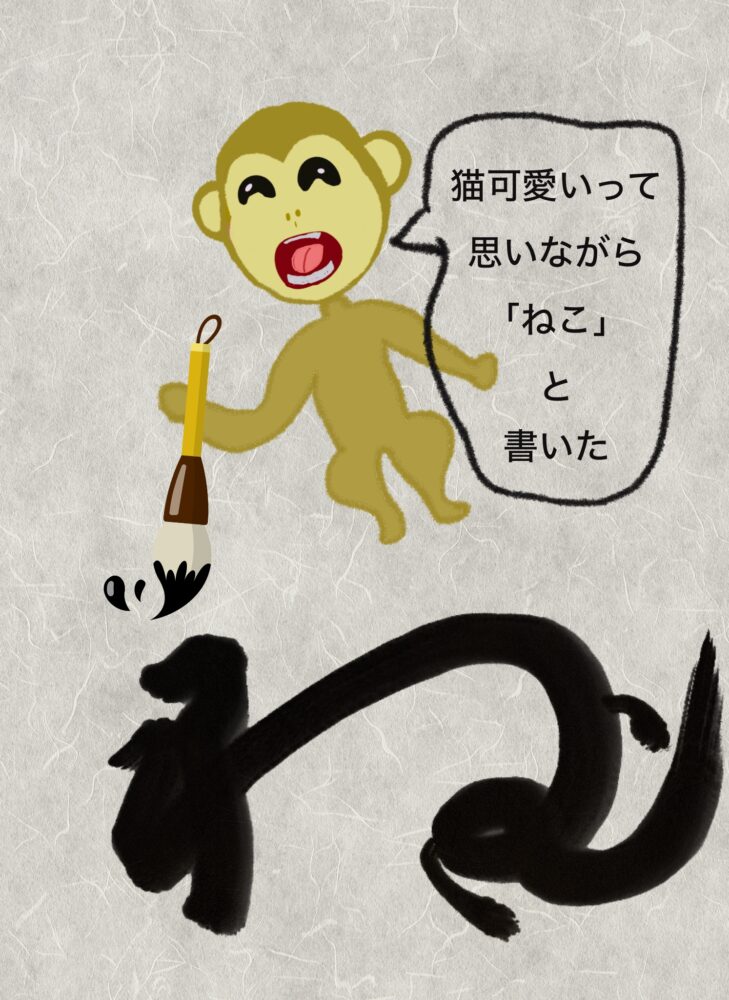 猫可愛いって
思いながら
「ねこ」
と
書いた
ね